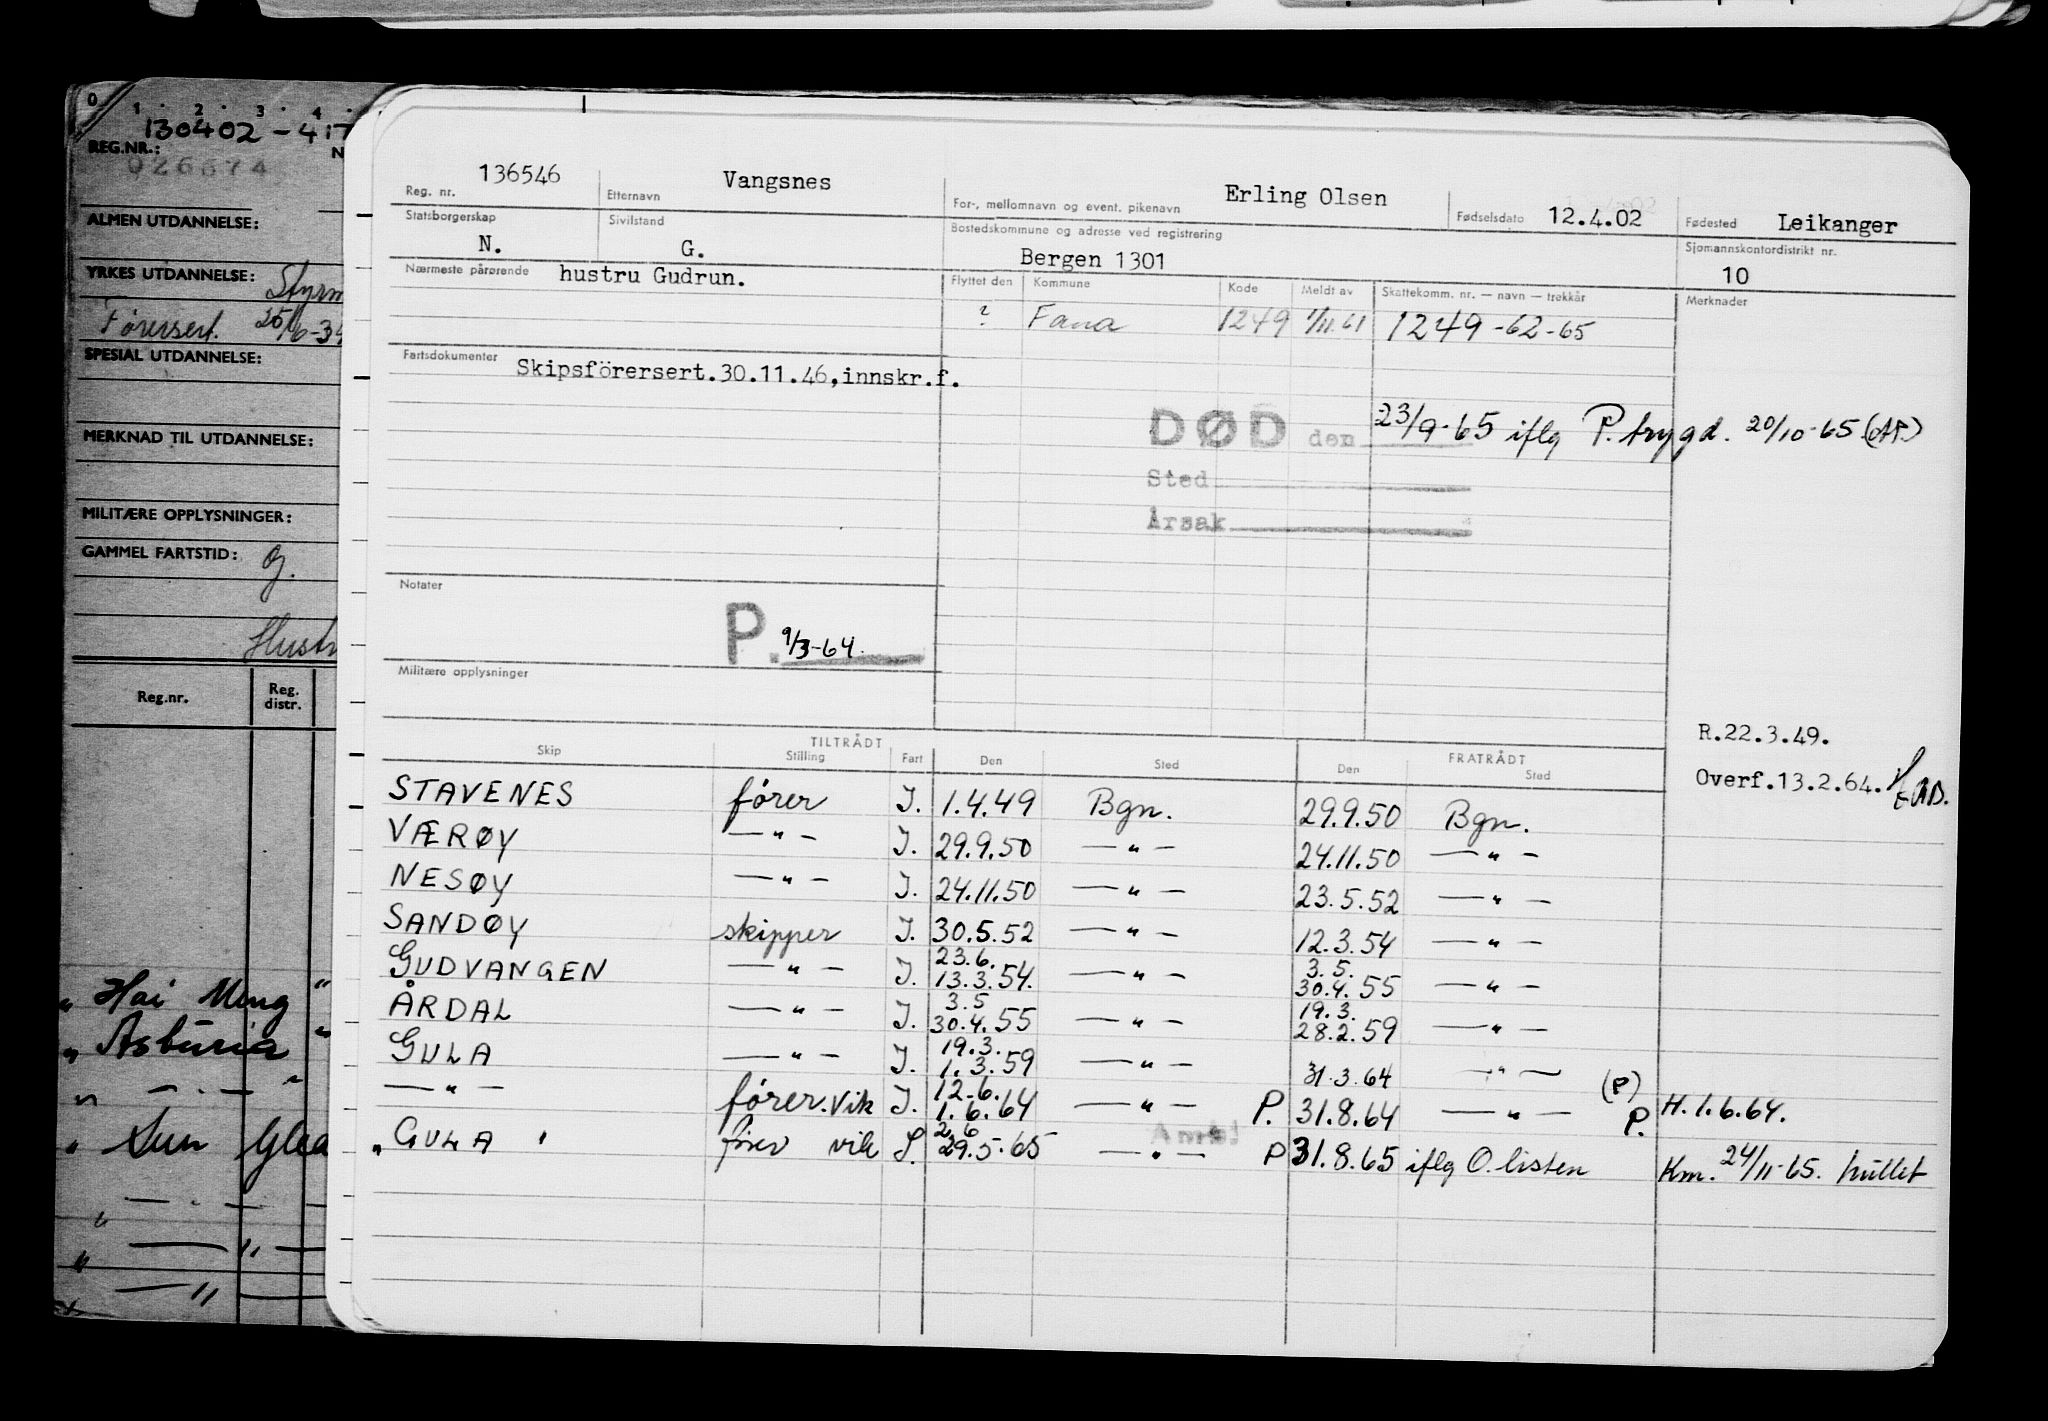 0 1 2 3 4
130402 - 417
REG.NR.: N
026674
ALMEN UTDANNELSE:
YRKES UTDANNELSE: Styrm
Førersert. 25/6-39
SPESIAL UTDANNELSE:
MERKNAD TIL UTDANNELSE:
MILITÆRE OPPLYSNINGER:
GAMMEL FARTSTID: g.
Hustr
Reg.nr. Reg. distr.
" Hai Ming "
" Asturia "
" — . — "
" Sun Glea
" — . — —
" — " —
— " —
Reg. nr. 136546 Etternavn Vangsnes For-, mellomnavn og event. pikenavn Erling Olsen Fødselsdato 12.4.02 Fødested Leikanger
Statsborgerskap N. Sivilstand G. Bostedskommune og adresse ved registrering Bergen 1301 Sjømannskontordistrikt nr. 10
Nærmeste pårørende hustru Gudrun. Flyttet den Kommune Kode Meldt av Skattekomm. nr. — navn — trekkår Merknader
? Fana 1249 1/11.61 1249-62-65
Fartsdokumenter Skipsförersert.30.11.46,innskr.f.
DØD den 23/9-65 iflg P. trygd. 20/10-65 (AF.)
Sted
Årsak
Notater
P. 9/3-64.
Militære opplysninger
R.22.3.49.
Overf.13.2.64.
TILTRÅDT FRATRÅDT
Skip Stilling Fart Den Sted Den Sted
STAVENES fører I. 1.4.49 Bgn. 29.9.50 Bgn.
VÆRØY — " — I. 29.9.50 — " — 24.11.50 — " —
NESØY — " — I. 24.11.50 — " — 23.5.52 — " —
SANDØY skipper I. 30.5.52 — " — 12.3.54 — " —
23.6. 3.5.
GUDVANGEN — " — I. 13.3.54. — " — 30.4.55 — " —
3.5 19.3.
ÅRDAL — " — I. 30.4.55 — " — 28.2.59 — " —
19.3.
GULA — " — I. 1.3.59 — " — 31.3.64 — " —
12.6. (P)
— " — fører.vik I. 1.6.64 — " — P. 31.8.64 — " — P. H.1.6.64.
2.6
" GULA " fører vik I. 29.5.65 — " — P 31.8.65 iflg O.listen Km. 24/11-65. hullet